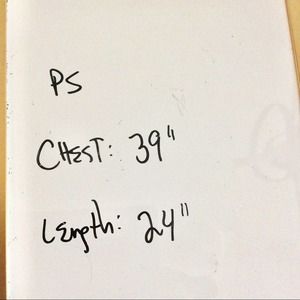 PS
CHEST: 39"
Length: 24"